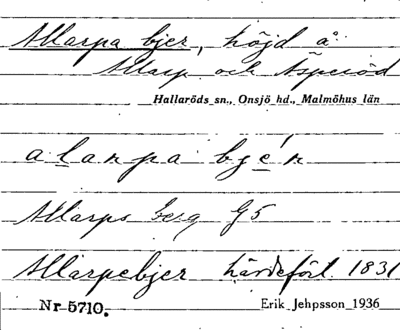 Allarpa bjer, höjd å
Allarp och Äsperöd
Hallaröds sn., Onsjö hd., Malmöhus län
alarpa bjér
Allarps berg G5
Allarpebjer häradsört. 1831
Nr 5710.
Erik Jehpsson 1936